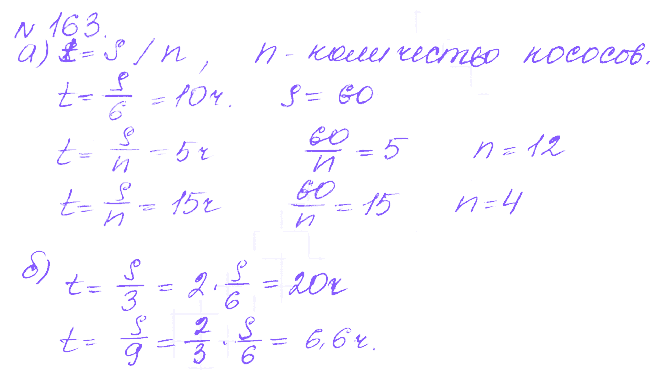 № 163.
а) t = S / n , n - количество кососов.
t = S/6 = 10ч. S = 60
t = S/n = 5ч 60/n = 5 n = 12
t = S/n = 15ч 60/n = 15 n = 4
б) t = S/3 = 2 · S/6 = 20ч
t = S/9 = 2/3 · S/6 = 6,6ч.